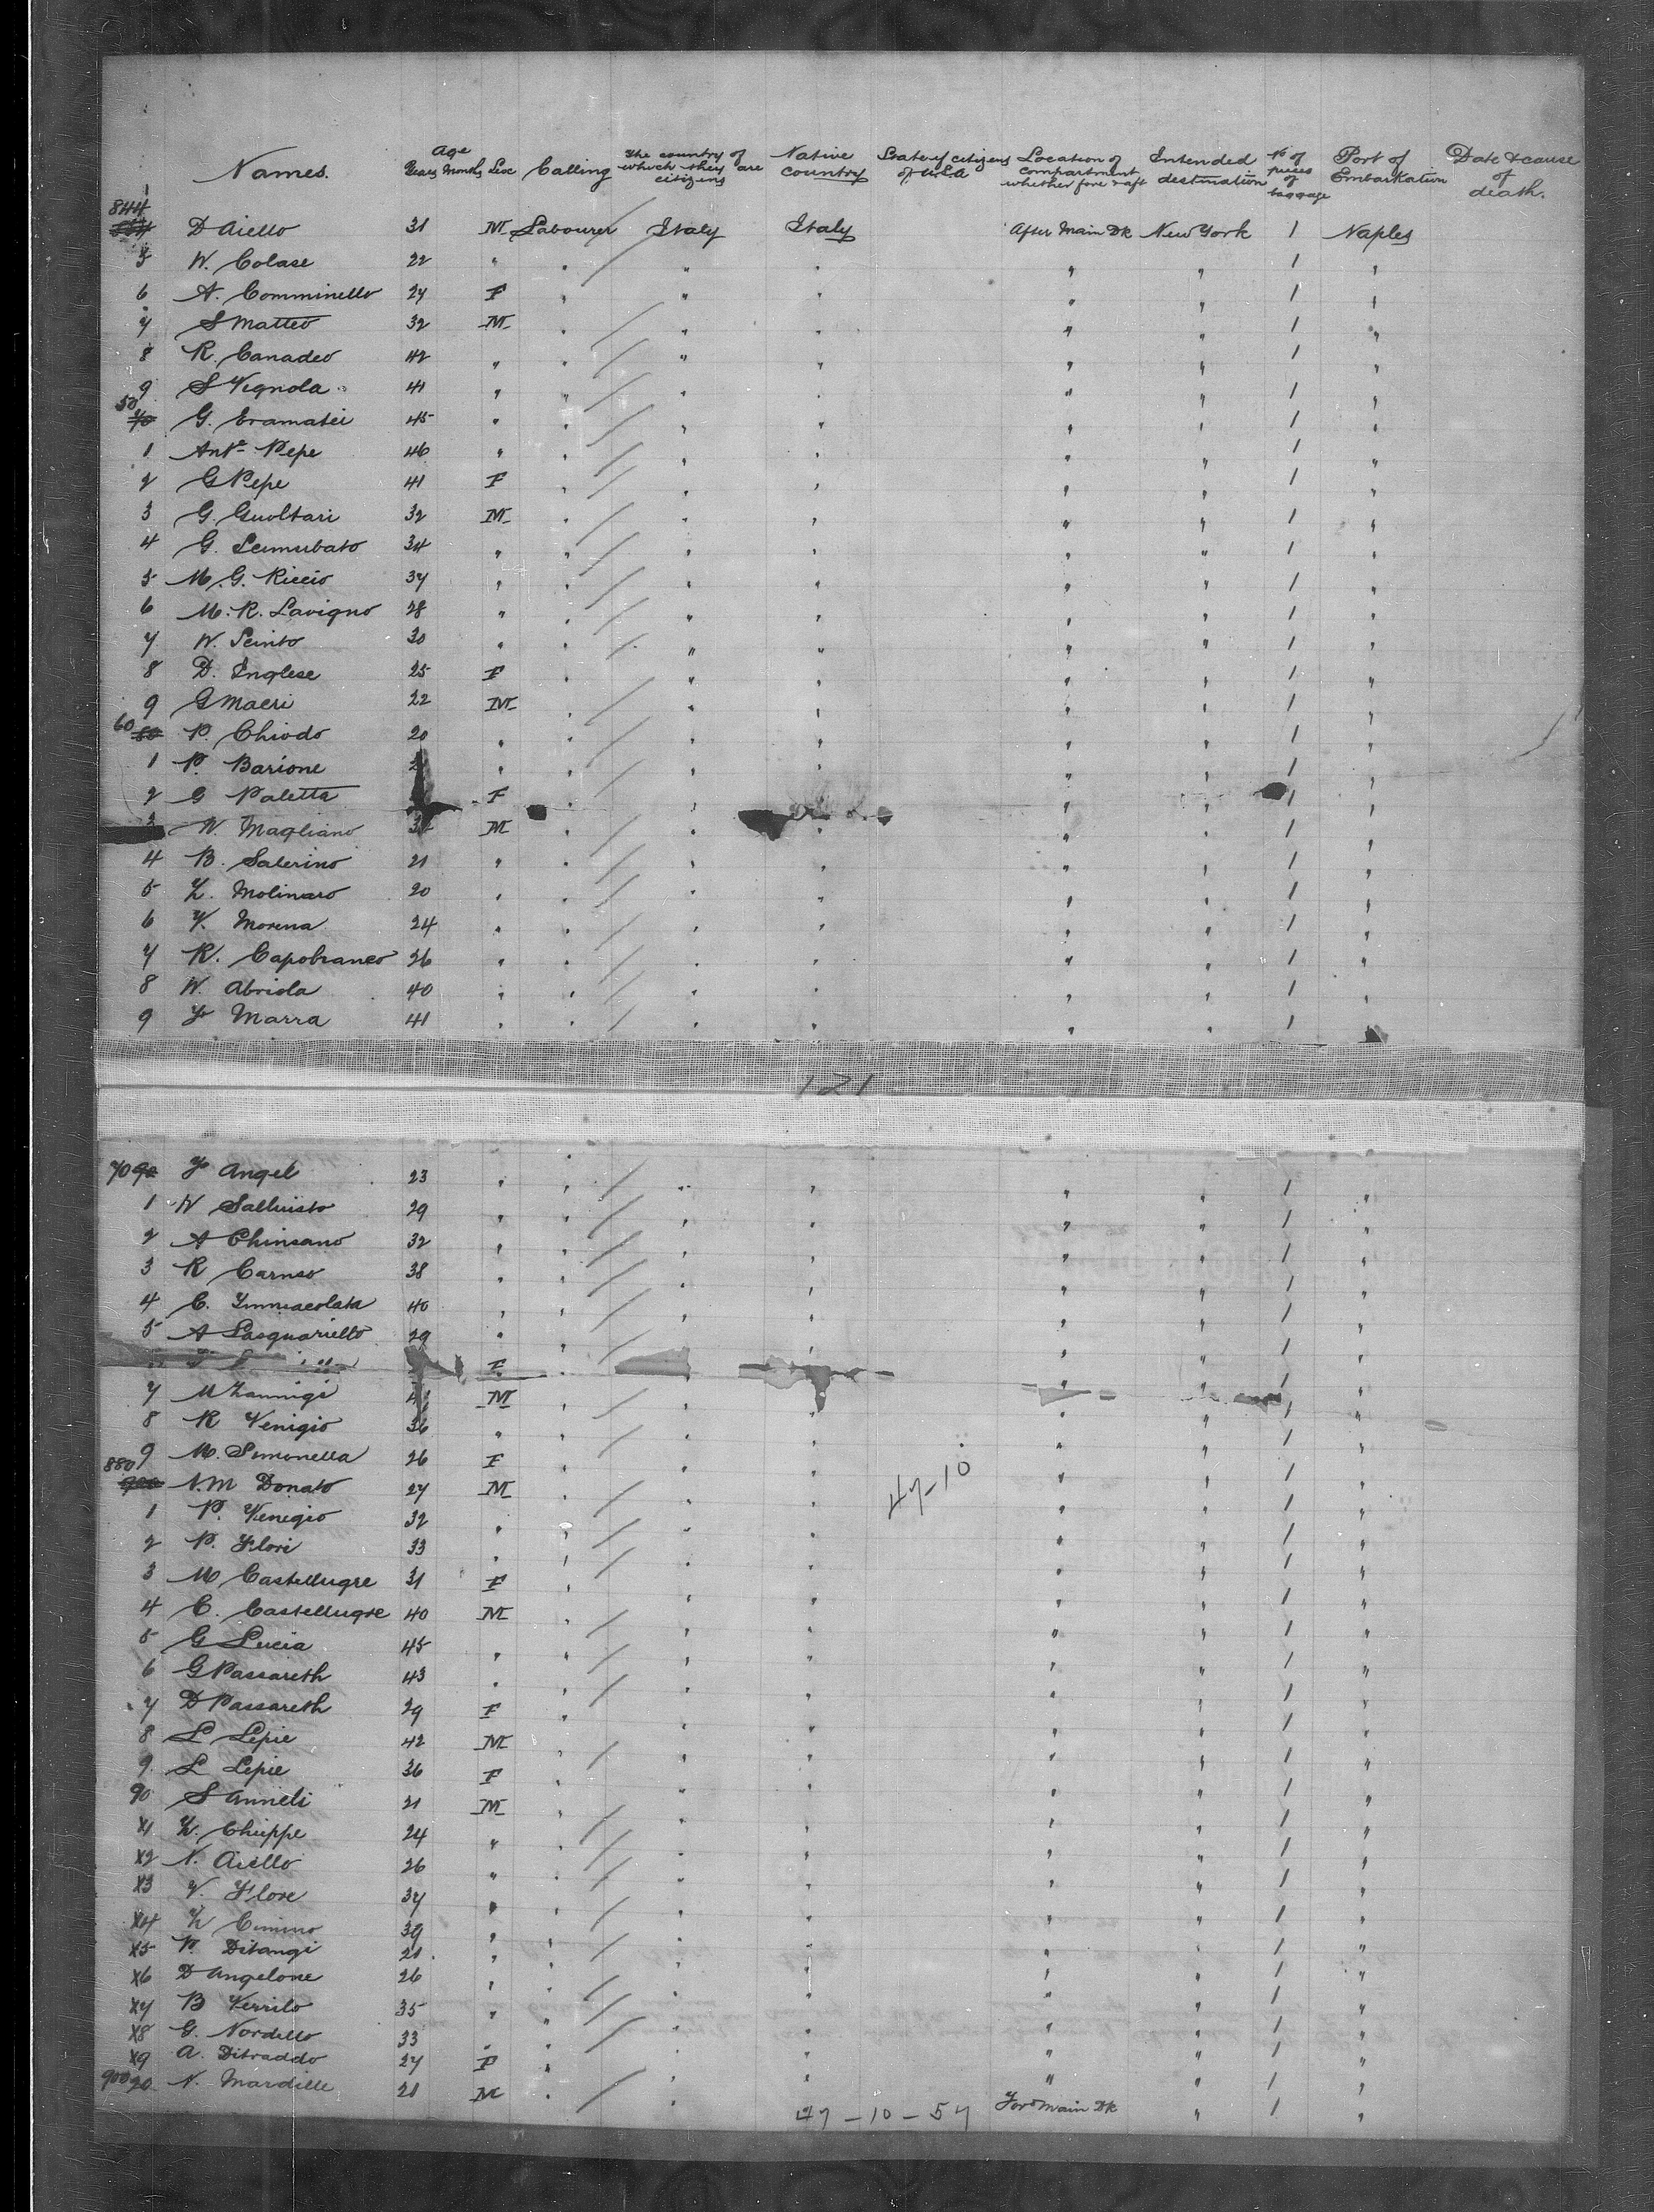 Names. Age Years Months Sex Calling The country of which they are citizens Native country State if citizens of U.S.A Location of compartment whether fore or aft Intended destination No of pieces of baggage Port of Embarkation Date & cause of death.
844 D Aiello 31 M Labourer Italy Italy After Main Dk New York 1 Naples
5 W. Colase 22 " " " " " " 1 "
6 A. Comminello 27 F " " " " " 1 "
7 S Matteo 32 M " " " " " 1 "
8 R. Canadeo 42 " " " " " " 1 "
9 S Vignola 41 " " " " " " 1 "
50 G. Eramatei 45 " " " " " " 1 "
1 Anto Pepe 46 " " " " " " 1 "
2 G Pepe 41 F " " " " " 1 "
3 G. Guoltari 32 M " " " " " 1 "
4 G. 34 " " " " " " 1 "
5 M. G. Riccio 37 " " " " " " 1 "
6 M. R. Lavigno 28 " " " " " " 1 "
7 W. 30 " " " " " " 1 "
8 D. Inglese 25 F " " " " " 1 "
9 G Macri 22 M " " " " " 1 "
60 P. Chiodo 20 " " " " " " 1 "
1 P. Barione " " " " " " 1 "
2 G Paletta F " " " " " 1 "
3 W. Magliano M " " " " " 1 "
4 B. Salerino 21 " " " " " " 1 "
5 Z. Molinaro 20 " " " " " " 1 "
6 V. Morena 24 " " " " " " 1 "
7 R. Capobranco 26 " " " " " " 1 "
8 W. Abriola 40 " " " " " " 1 "
9 F Marra 41 " " " " " " 1 "
121
70 F Angel 23 " " " " " " 1 "
1 W Salluisto 29 " " " " " " 1 "
2 A Chinsano 32 " " " " " " 1 "
3 R Caruso 38 " " " " " " 1 "
4 C. Immacolata 40 " " " " " " 1 "
5 A Pasquariello 29 " " " " " " 1 "
F " " " 1 "
7 M Zannigi M " " " " " 1 "
8 R Venigio 36 " " " " " " 1 "
9 M. Simonella 26 F " " " " " 1 "
880 N. M Donato 27 M " " " 47-10 " " 1 "
1 P. Venigio 32 " " " " " " 1 "
2 P. Flori 33 " " " " " " 1 "
3 M Castellugre 31 F " " " " " 1 "
4 C. Castellugre 40 M " " " " " 1 "
5 G Lucia 45 " " " " " " 1 "
6 G Passareth 43 " " " " " " 1 "
7 D Passareth 29 F " " " " " 1 "
8 L Lepie 42 M " " " " " 1 "
9 L Lepie 36 F " " " " " 1 "
90 S Anneli 21 M " " " " " 1 "
X1 Z. Chieppe 24 " " " " " " 1 "
X2 N. Aiello 26 " " " " " " 1 "
X3 V. Flore 37 " " " " " " 1 "
X4 Z Cimino 39 " " " " " " 1 "
X5 P. Ditangi 21 " " " " " " 1 "
X6 D Angelone 26 " " " " " " 1 "
X7 B Verrilo 35 " " " " " " 1 "
X8 G. Nordello 33 " " " " " " 1 "
X9 A. Ditraddo 27 F " " " " " 1 "
900 N. Mardille 21 M " " 47-10-57 Ford Main Dk " 1 "